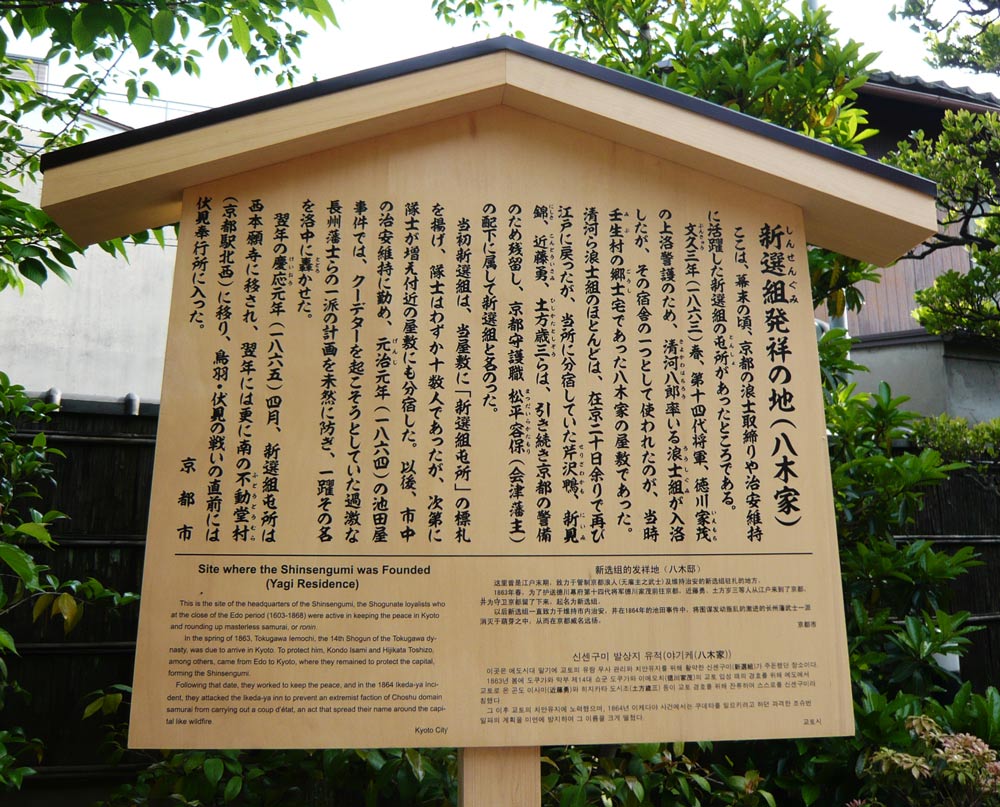 しんせんぐみ
新選組発祥の地(八木家)
ここは、幕末の頃、京都の浪士取締りや治安維持
に活躍した新選組の屯所があったところである。
文久三年(一八六三)春、第十四代将軍、徳川家茂
の上洛警護のため、清河八郎率いる浪士組が入洛
したが、その宿舎の一つとして使われたのが、当時
壬生村の郷士宅であった八木家の屋敷であった。
清河ら浪士組のほとんどは、在京二十日余りで再び
江戸に戻ったが、当所に分宿していた芹沢鴨、新見
錦、近藤勇、土方歳三らは、引き続き京都の警備
のため残留し、京都守護職 松平容保(会津藩主)
の配下に属して新選組と名のった。
当初新選組は、当屋敷に「新選組屯所」の標札
を揚げ、隊士はわずか十数人であったが、次第に
隊士が増え付近の屋敷にも分宿した。以後、市中
の治安維持に勤め、元治元年(一八六四)の池田屋
事件では、クーデターを起こそうとしていた過激な
長州藩士らの一派の計画を未然に防ぎ、一躍その名
を洛中に轟かせた。
翌年の慶応元年(一八六五)四月、新選組屯所は
西本願寺に移され、翌年には更に南の不動堂村
(京都駅北西)に移り、鳥羽・伏見の戦いの直前には
伏見奉行所に入った。
京都市
Site where the Shinsengumi was Founded
(Yagi Residence)
This is the site of the headquarters of the Shinsengumi, the Shogunate loyalists who
at the close of the Edo period (1603-1868) were active in keeping the peace in Kyoto
and rounding up masterless samurai, or ronin.
In the spring of 1863, Tokugawa Iemochi, the 14th Shogun of the Tokugawa dy-
nasty, was due to arrive in Kyoto. To protect him, Kondo Isami and Hijikata Toshizo,
among others, came from Edo to Kyoto, where they remained to protect the capital,
forming the Shinsengumi.
Following that date, they worked to keep the peace, and in the 1864 Ikeda-ya Inci-
dent, they attacked the Ikeda-ya inn to prevent an extremist faction of Choshu domain
samurai from carrying out a coup d'état, an act that spread their name around the capi-
tal like wildfire.
Kyoto City
新选组的发祥地(八木邸)
这里曾是江户末期,致力于管制京都浪人(无雇主之武士)及维持治安的新选组驻扎的地方。
1863年春,为了护送德川幕府第十四代将军德川家茂前往京都,近藤勇、土方岁三等人从江户来到了京都,
并为守卫京都留了下来,起名为新选组。
以后新选组一直致力于维持市内治安,并在1864年的池田事件中,将图谋发动叛乱的激进的长州藩武士一派
消灭于萌芽之中,从而在京都威名远扬。
京都市
신센구미 발상지 유적(야기케(八木家))
이곳은 에도시대 말기에 교토의 유랑 무사 관리와 치안유지를 위해 활약한 신센구미(新選組)가 주둔했던 장소이다.
1863년 봄에 도쿠가와 막부 제14대 쇼군 도쿠가와 이에모치(徳川家茂)의 교토 입성 때의 경호를 위해 에도에서
교토로 온 곤도 이사미(近藤勇)와 히지카타 도시조(土方歳三) 등이 교토 경호를 위해 잔류하여 스스로를 신센구미라
칭했다.
그 이후 교토의 치안유지에 노력했으며, 1864년 이케다야 사건에서는 쿠데타를 일으키려고 하던 과격한 조슈번
일파의 계획을 미연에 방지하여 그 이름을 크게 떨쳤다.
교토시